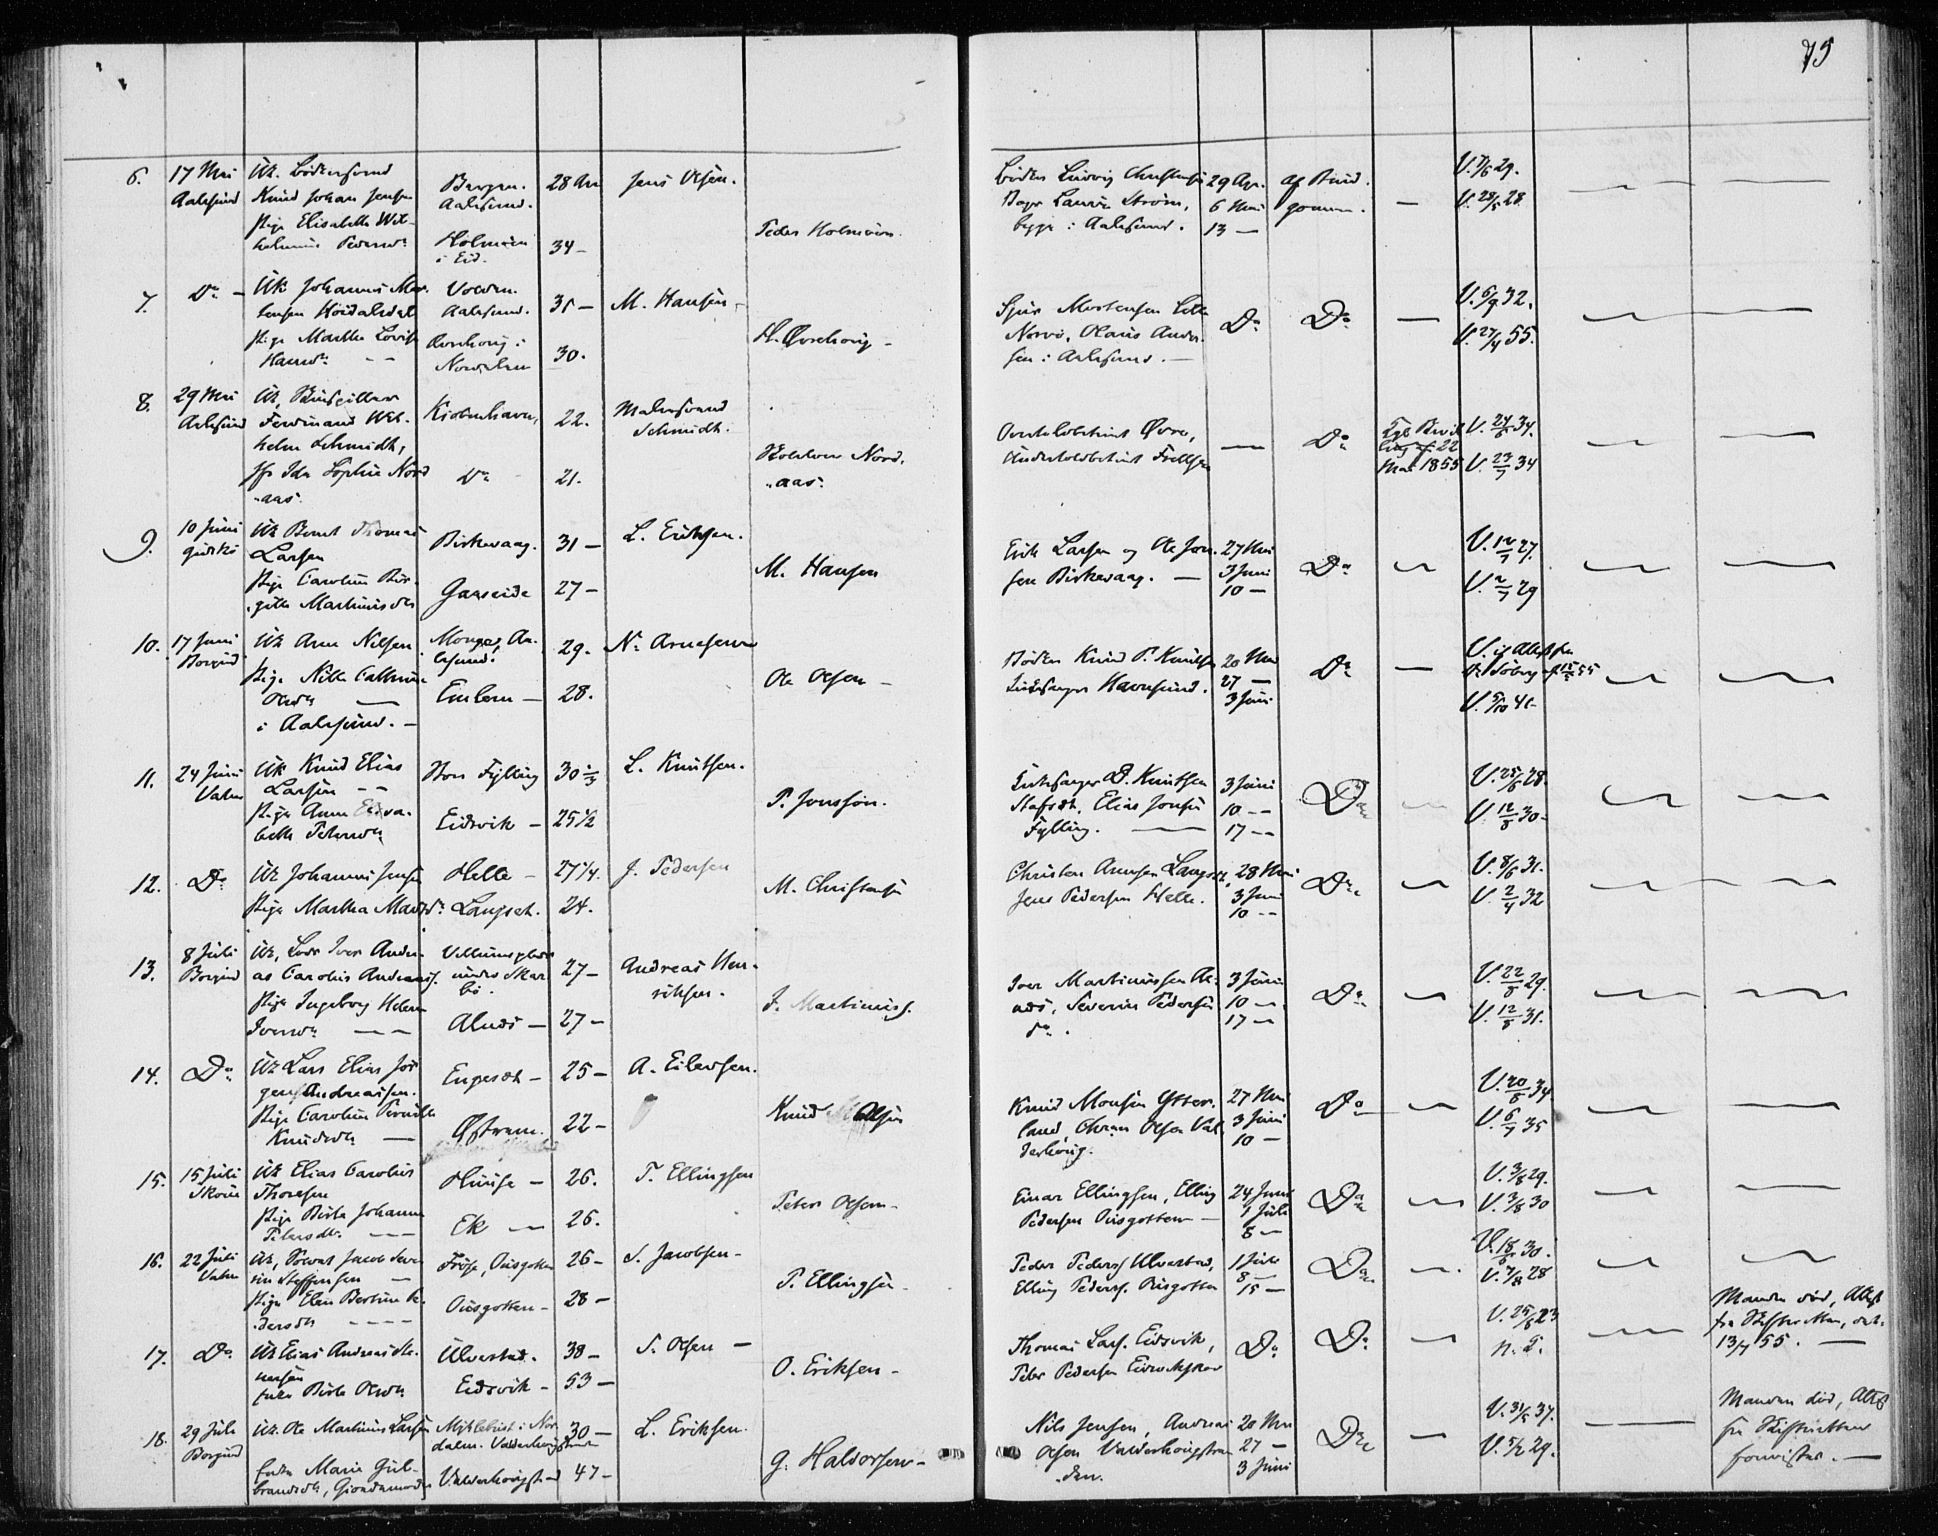 75
6.
17 Mai
Aalesund
Uk. Bödkersvend
Knud Johan Jensen
Pige Elisabeth Wil-
helmine Pedersdr
Bergen.
Aalesund.
Holmeim
i Eid.
28 Aar
34 -
Jens Olsen.
Peder Holmeim.
Bödker Ludvig Christensen
Lauritz Ström,
begge i Aalesund.
29 Apr.
6 Mai
13 —
af Bind.
gommen.
—
V. 7/6 29.
V. 28/5 28.
7.
Do -
Uk. Johannes Mor-
tensen Höidalsdal
Pige Marthe Lovise
Hansdr. - -
Volden.
Aalesund.
Overhoug i
Norddalen
35 —
30.
M. Hansen -
H. Øvrehoug -
Sjur Mortensen Lille
Nörvö, Olaus Ander-
sen i Aalesund. —
Do
Do
—
V. 6/9 32.
V. 27/4 55.
8.
29 Mai
Aalesund
Uk.
Ferdinand Wil-
helm Schmidt,
Jfr Ida Sophie Nord
-aas.
Kiöbenhavn,
Do
22.
21.
Malersvend
Schmidt.
Nord-
-aas.
Overtoldbetjent Øvre,
Undertoldbetjent
—
Do
Kgl. Bevil-
ling af 22
Mai 1855
V. 24/6 34.
V. 23/7 34
9.
10 Juni
Giskö
Uk Bernt Thomas
Larsen
Pige Caroline Bir-
-gitte Martinusdr
Birkevaag.
Gaaseide
31 —
27 —
L. Eriksen.
M. Hansen
Erik Larsen og Ole Jon-
sen Birkevaag. —
27 Mai
3 Juni
10 —
Do
V. 12/7 27.
V. 2/7 29
10.
17 Juni
Borgund
Uk Arne Nilsen
Pige Nille Cathrine
Olsdr —
i Aalesund. —
Mouges, Aa-
lesund.
Emlem —
29.
28.
N. Arnesen
Ole Olsen —
Bödker Knud P. Knudsen
Havnsund.
20 Mai
27 —
3 Juni
Do
—
V. if Attest fra
Dr. Söberg af 15/5 55
V. 5/10 41-
11.
24 Juni
Vatne
Uk Knud Elias
Larsen - -
Pige Anne Elisa-
beth Petersdr
Store Fylling
Eidsvik —
30 1/3
25 1/2
L. Knutsen.
P. Jonssön.
D. Knutsen
Stafsæt, Elias Jonsen
Fylling. —
3 Juni
10 --
17 --
Do
V. 25/6 28.
V. 12/8 30-
12.
Do
Uk Johannes Jensen
Pige Martha Madsdr
Helle -
Langset.
27 1/4.
24.
J. Pedersen
M. Christensen
Christen Arnesen Langset,
Jens Pedersen Helle.
28 Mai
3 Juni
10 --
Do
V. 8/6 31.
V. 2/4 32
13.
8 Juli
Borgund
Uk, Lods Iver Andre-
as Carolus Andreass.
Pige Ingeborg Helene
Iversdr — —
under Skar-
bö.
Alnæs —
27 —
27 —
Andreas Hen-
riksen.
I. Martinuss.
Iver Martinussen Al-
næs, Severin Pedersen
do.
3 Juni
10 —
17 —
Do
V. 22/8 29.
V. 12/8 31.
14.
Do
Uk Lars Elias Jör-
gen Andreassen.
Pige Caroline Pernille
Knudsdr —
Engeset —
Østrem.
25 —
22 —
A. Eilertsen.
Knud Olsen
Knud Monsen Ytter-
land, Chran Olsen Val-
derhoug.
27 Mai
3 Juni
10 —
Do
V. 20/6 34
V. 6/7 35
15.
15 Juli
Skoue
Uk Elias Carolus
Thoresen
Pige Birte Johanne
Petersdr. —
Huuse —
Ek —
26.
26.
T. Ellingsen
Peter Olsen -
Einar Ellingsen, Elling
Pedersen Ousgotten —
24 Juni
1 Juli
8 —
Do
V. 3/8 29.
V. 3/8 30
16.
22 Juli
Vatne
Uk, Jacob Seve-
rin Steffensen —
Pige Elen Bertine Pe-
dersdr - - - -
Fröse, Ousgotten
Ousgotten —
26 —
28 —
S. Jacobsen —
P. Ellingsen -
Peder Peders. Ulvestad,
Elling Peders. Ousgotten
1 Juli
8 —
15 —
Do
V. 18/6 30.
V. 7/8 28
17.
Do
Uk Elias Andreas
Enke Birte Olsdr
Ulvestad.
Eidsvik —
38 —
53 —
S. Olsen —
O. Eriksen -
Thomas Lars. Eidsvik,
Peter Pedersen
Do
Do
V. 25/6 23
n. T.
Manden död, Attest
fra Skifteretten, dat.
13/7 55. —
18.
29 Juli
Borgund
Uk. Ole Martinus Larsen
Enke Marie Gul-
brandsdr,
Myklebust i Nor-
dalen. Valderhougstrand
Valderhougstrand
30 —
47 —
L. Eriksen.
G. Haldorsen —
Nils Jensen, Andreas
Olsen Valderhougstran-
den.
20 Mai
27 —
3 Juni
Do
—
V. 31/5 37.
V. 5/2 29.
Manden död, Attest
fra Skifteretten
forevist. —